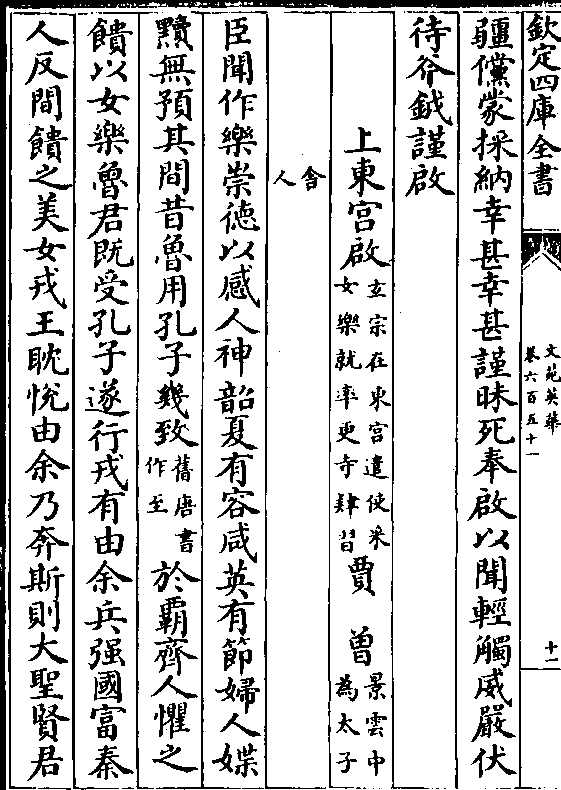 欽定四庫全書
文苑英華
卷六百五十一
十一
疆儻蒙採納幸甚幸甚謹昧死奉啟以聞輕觸威嚴伏
待斧鉞謹啟
上東宮啟玄宗在東宮遣使采女樂就率更寺肄習賈曾景雲中為太子
舍人
臣聞作樂崇德以感人神韶夏有容咸英有節婦人媟
黷無預其間昔魯用孔子幾致舊唐書作至於霸齊人懼之
饋以女樂魯君既受孔子遂行戎有由余兵强國富秦
人反間饋之美女戎王耽悅由余乃奔斯則大聖賢君